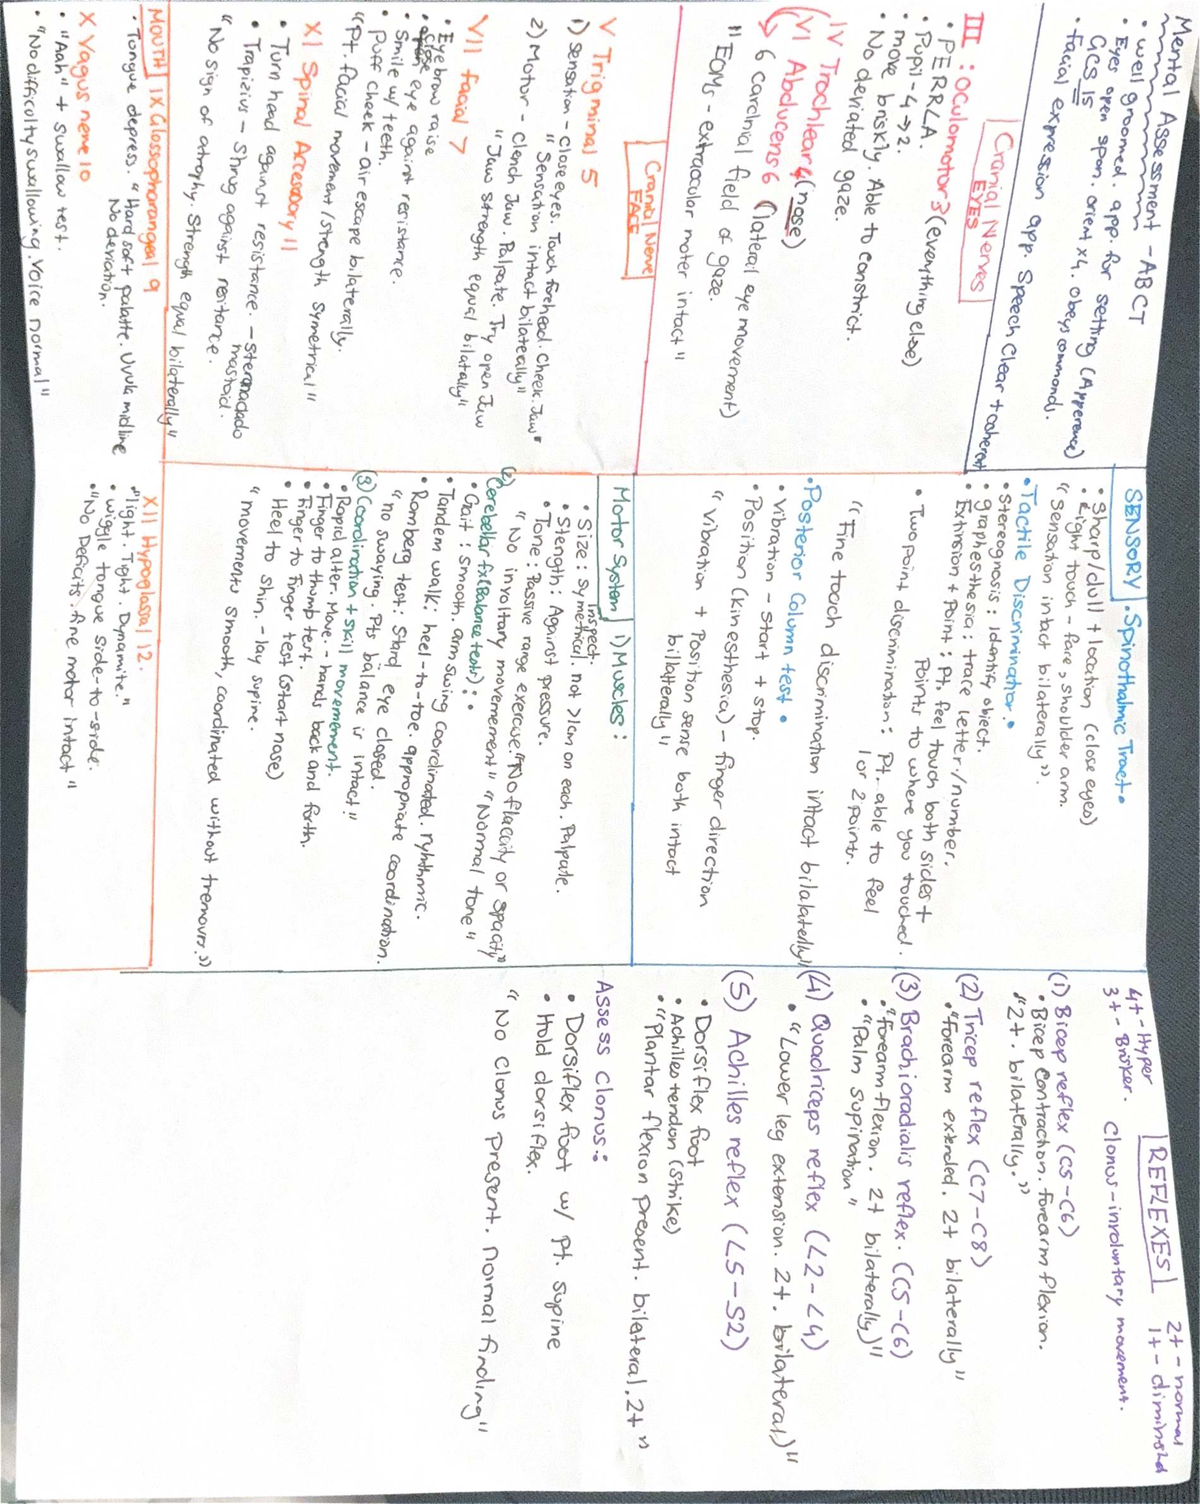 Mental Assessment - ABCT
• well groomed. app. for setting (Apperence)
• Eyes open spon. orient x4. obeys commands.
GCS 15
• facial expression app. Speech clear + coherent
Cranial Nerves
EYES
III : Oculomotor 3 (everything else)
• PERRLA.
• Pupil - 4 → 2.
• move briskly. Able to constrict.
• No deviated gaze.
IV Trochlear 4 (nose)
VI Abducens 6 (lateral eye movement)
↳ 6 cardinal field of gaze.
"EOMs - extraocular moter intact"
Cranial Nerve
FACE
V Trigminal 5
1) sensation - close eyes. Touch forehead. cheek. Jaw
"Sensation intact bilaterally"
2) Motor - clench Jaw. Palpate. Try open Jaw
"Jaw strength equal bilatally"
VII facial 7
• Eyebrow raise
• close eye against resistance.
• Smile w/ teeth.
• puff cheek - air escape bilaterally.
"Pt. facial movement/strength symetrical"
XI Spinal Accessory 11
• Turn head against resistance. - Sternoclado mastoid.
• Trapizius - shrug against resitance.
"No sign of atrophy. Strength equal bilaterally"
MOUTH IX Glossophorangeal 9
• Tongue depress. "Hard soft palatte. Uvula midline
No deviation.
X Vagus nerve 10
• "Aah" + swallow test.
• "No difficulty swallowing. Voice normal"
SENSORY • Spinothalmic Tract •
• Sharp/dull + location (close eyes)
• Light touch - face, shoulder arm.
"Sensation intact bilaterally".
• Tactile Discrimination •
• Stereognosis : identify object.
• graphesthesia : trace letter/number.
• Extinsion + Point : Pt. feel touch both sides +
Points to where you touched.
• Two point discrimination : Pt. able to feel
1 or 2 points.
"Fine touch discrimination intact bilalaterally"
• Posterior Column test •
• vibration - start + stop.
• Position (kinesthesia) - finger direction
"vibration + Position sense both intact
billatterally"
Motor System 1) Muscles :
inspect.
• Size : symetrical. not >1cm on each. Palpate.
• Stength : Against pressure.
• Tone : Passive range exercise. "No flaccity or spacity"
"No involtary movement" "Normal tone"
(2) Cerebellar fx (Balance tests) :
• Gait : smooth. arm swing coordinated. ryhthmic.
• Tandem walk : heel-to-toe. appropriate coordination.
• Romberg test : stand eye closed.
"no swaying. Pts balance is intact"
(3) Coordination + skill movemement.
• Rapid alter. Move. - hands back and forth.
• Finger to thumb test.
• Finger to Finger test (start nose)
• Heel to shin. - lay supine.
"movements smooth, coordinated without tremours."
XII Hypoglossal 12.
• "light. Tight. Dynamite."
• wiggle tongue side-to-side.
• "No Deficits. fine motor intact"
REFLEXES
4+ - Hyper 2+ - normal
3+ - Brisker. 1+ - diminishd
Clonus - involuntary movement.
(1) Bicep reflex (C5-C6)
• Bicep Contraction. forearm flexion.
"2+. bilaterally."
(2) Tricep reflex (C7-C8)
• "forearm extended. 2+ bilaterally"
(3) Brachioradialis reflex. (C5-C6)
• "forearm flexion. 2+ bilaterally"
• "Palm supination"
(4) Quadriceps reflex (L2-L4)
• "Lower leg extension. 2+. bilateral"
(5) Achilles reflex (L5-S2)
• Dorsiflex foot
• Achilles tendon (strike)
• "Plantar flexion present. bilateral. 2+"
Assess Clonus :
• Dorsiflex foot w/ Pt. supine
• Hold dorsiflex.
"No clonus present. normal finding"